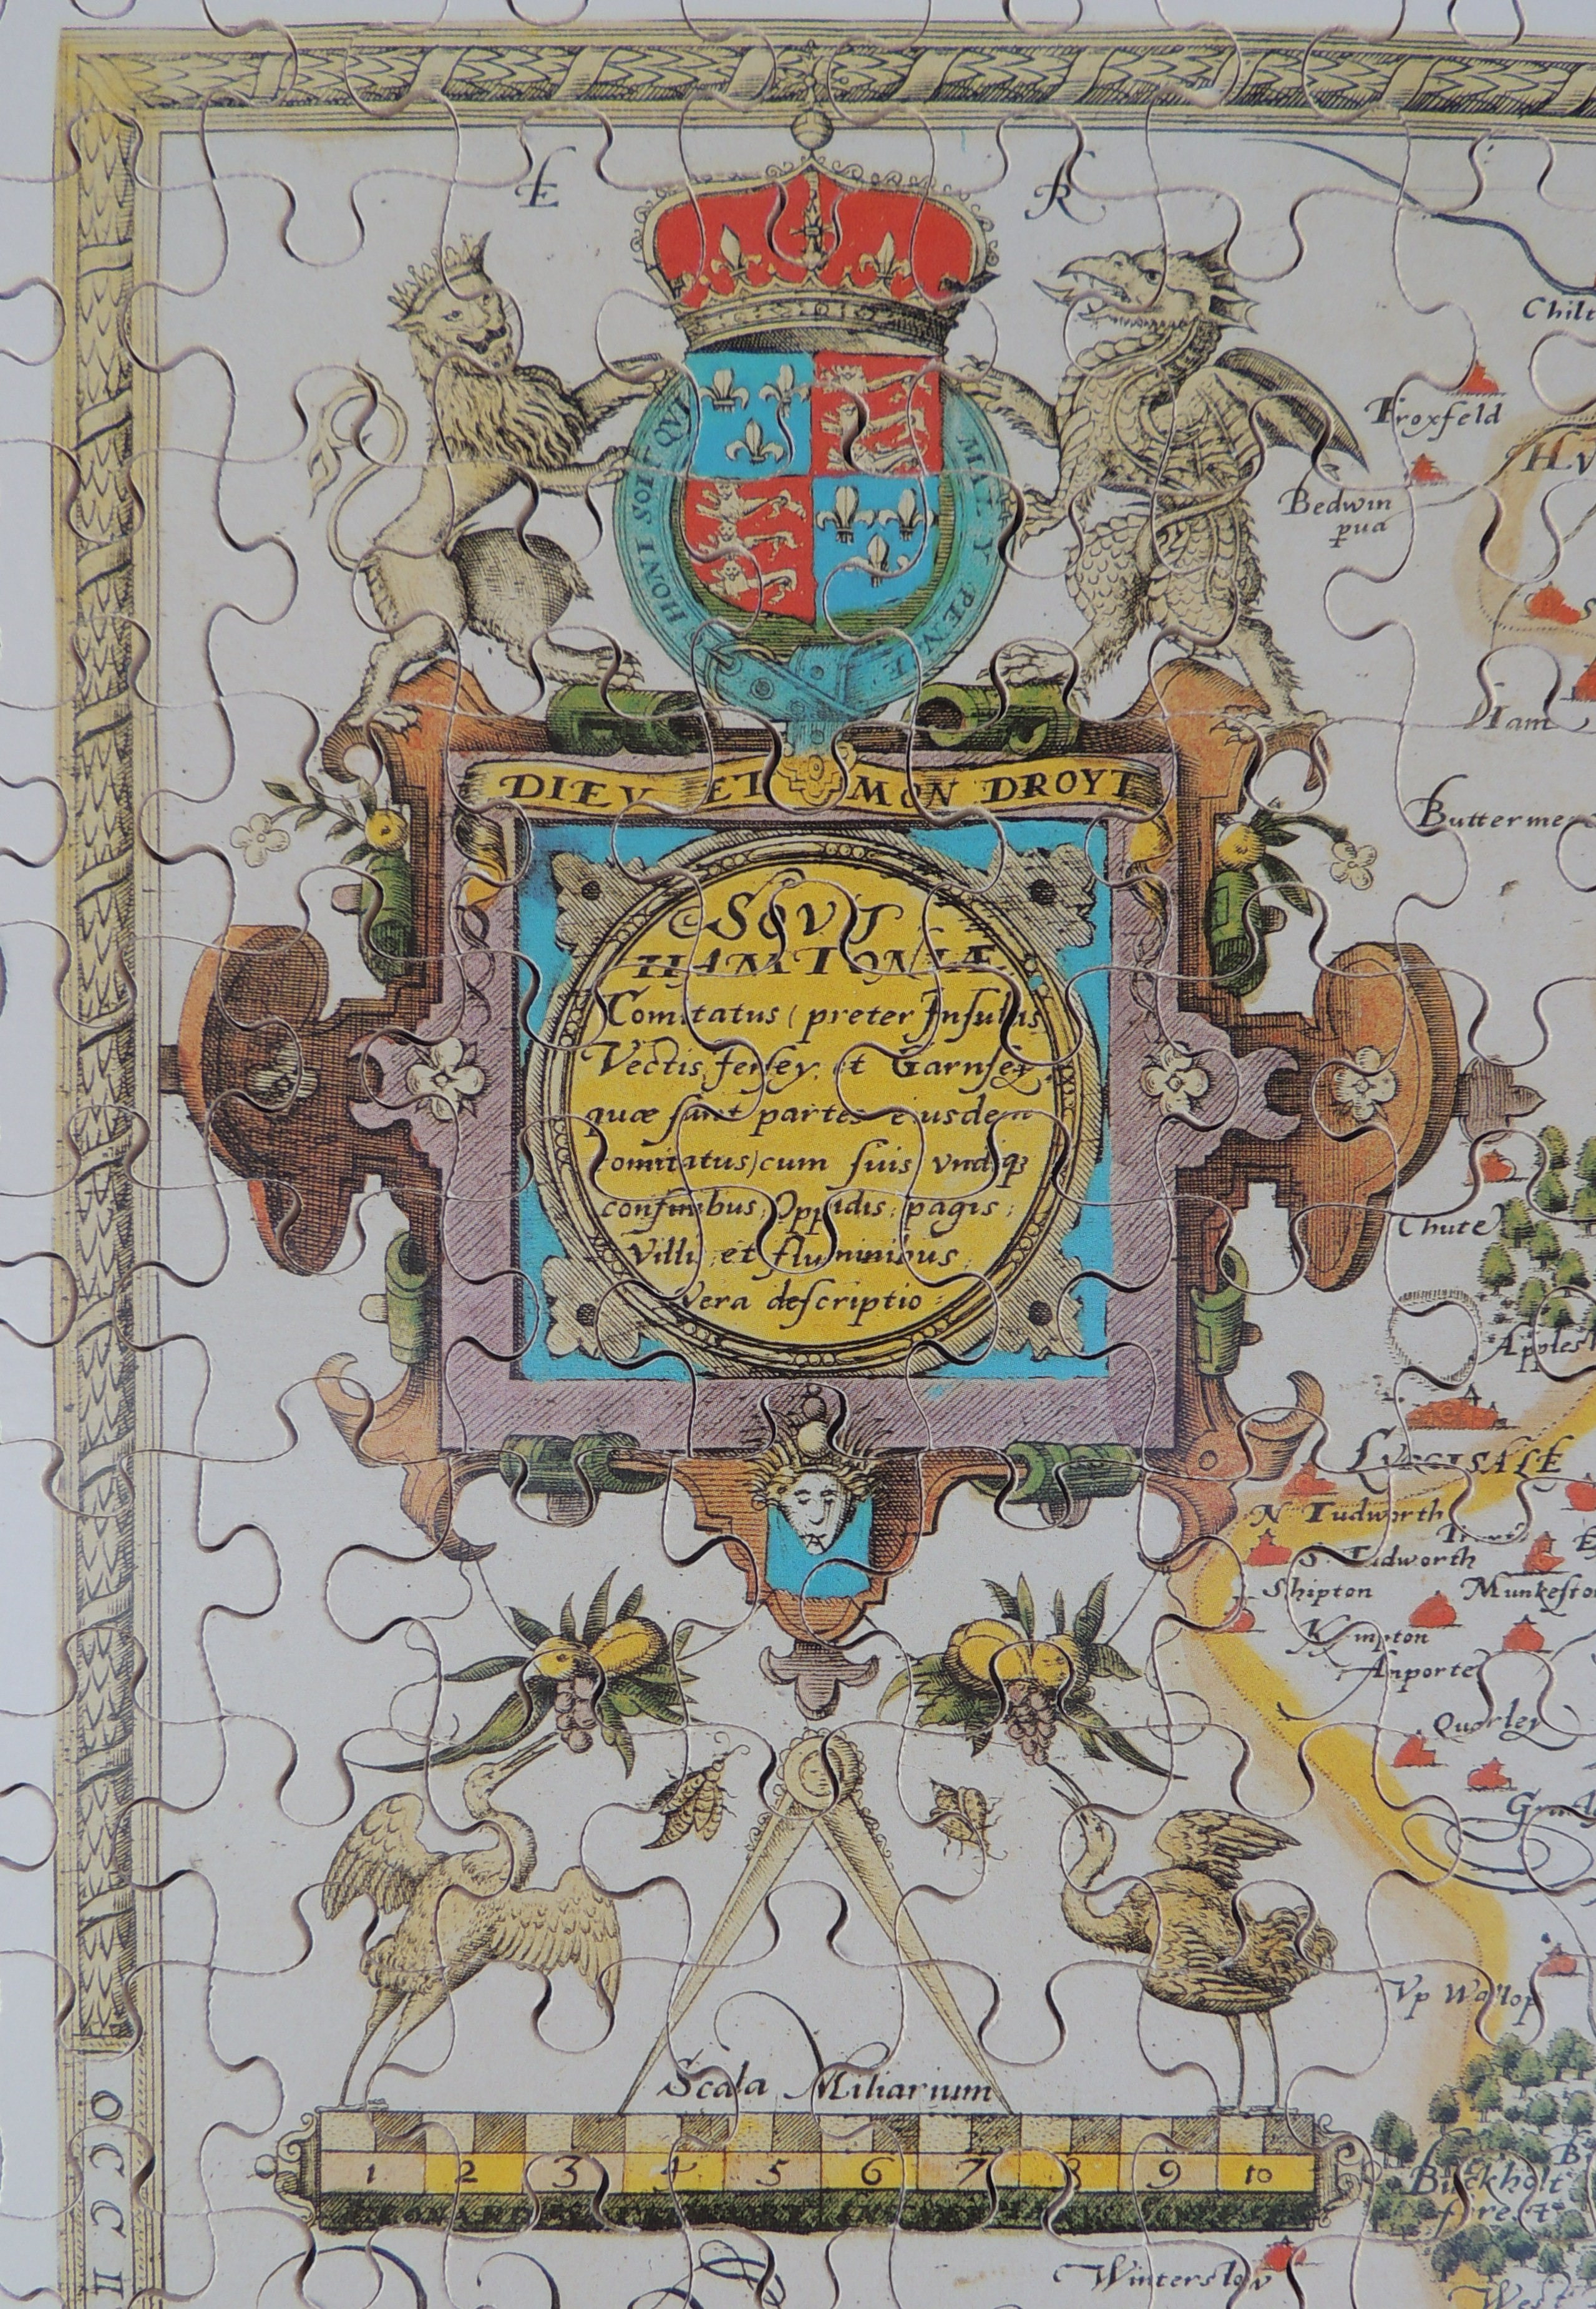 E R
HONI SOIT QVI
MALY PENSE
DIEV ET MON DROYT
SOVT
HAMTONIÆ
Comitatus (preter Insulas
Vectis Jersey, et Garnsey,
quæ sunt partes eiusdem
comitatus) cum suis vndiqꝫ
confinibus, Oppidis, pagis,
Villis, et fluminibus
Vera descriptio:
Scala Miliarium
1 2 3 4 5 6 7 8 9 10
OCCI
Chilt
Froxfeld
HV
Bedwin
pua
Ham
Butterme
Chute
Applesh
LVRGISALE
N Tudworth
S. Tudworth
Shipton
Munkesto
Kimpton
Anporte
Quarley
Vp Wallop
Buckholt
forest
Winterslow
West